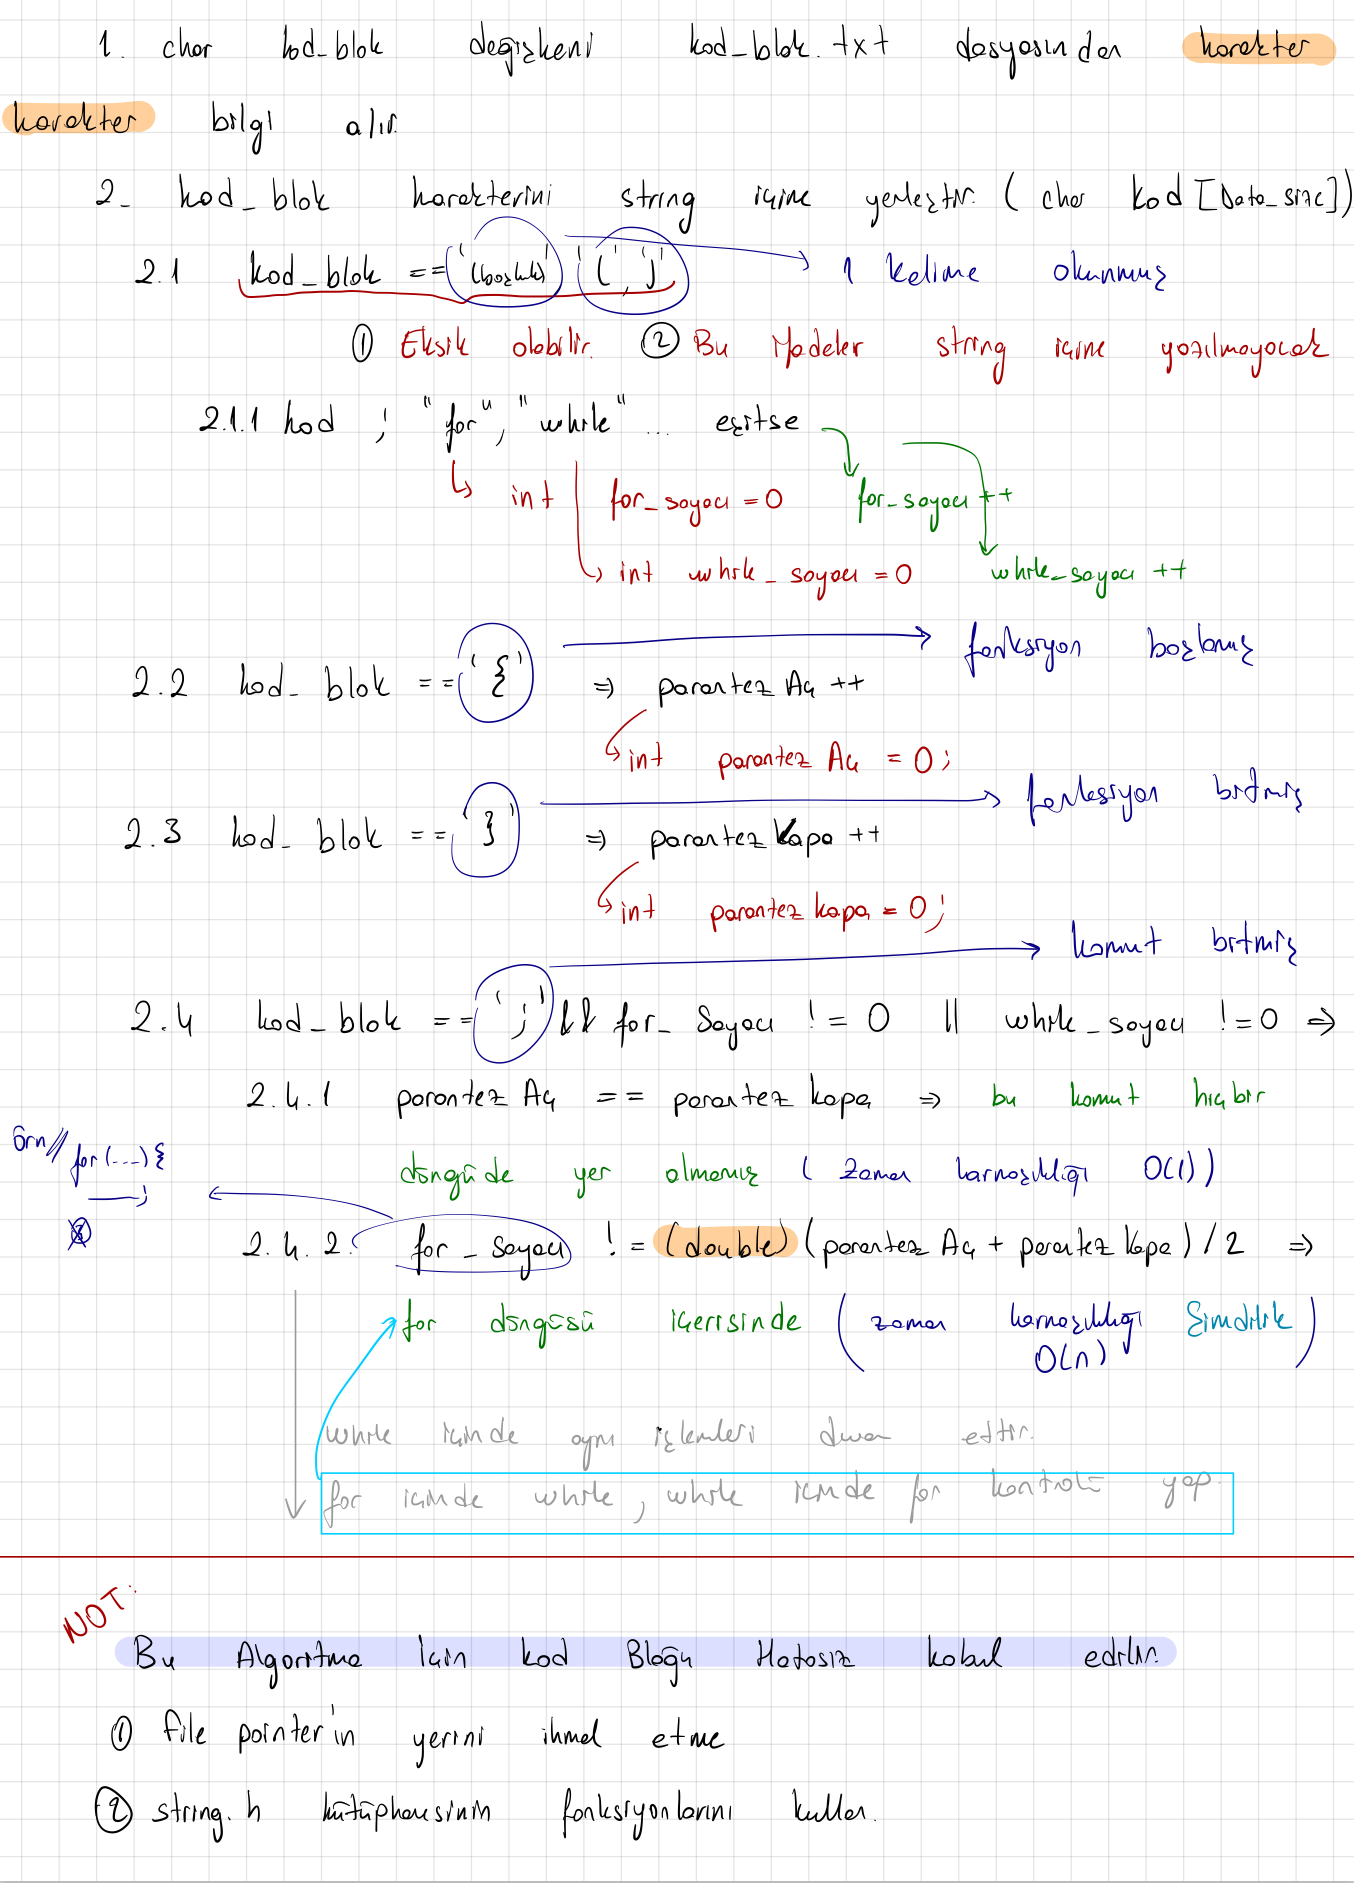 1. char kod_blok değişkeni kod_blok.txt dosyasından karakter
karakter bilgi alır.
2- kod_blok karakterini string içine yerleştir. ( char kod [Data_size])
2.1 kod_blok == '(boşluk)' '(' , ')' 1 kelime okunmuş
① Eksik olabilir. ② Bu ifadeler string içine yazılmayacak
2.1.1 kod ; "for", "while" ... eşitse
int for_sayacı = 0 for_sayacı ++
int while_sayacı = 0 while_sayacı ++
fonksiyon başlamış
2.2 kod_blok == '{' => parantez Aç ++
int parantez Aç = 0;
fonksiyon bitmiş
2.3 kod_blok == '}' => parantez Kapa ++
int parantez kapa = 0;
komut bitmiş
2.4 kod_blok == ';' && for_Sayacı != 0 || while_sayacı != 0 =>
2.4.1 parantez Aç == parantez kapa => bu komut hiçbir
Örn// for (---) {
___;
döngüde yer almamış ( zaman karmaşıklığı O(1))
2.4.2. for_sayacı != (double) (parantez Aç + parantez Kapa) / 2 =>
for döngüsü içerisinde ( zaman karmaşıklığı Şimdilik )
O(n)
while içinde aynı işlemleri devam ettir.
for içinde while, while içinde for kontrolü yap.
NOT:
Bu Algoritma İçin kod Bloğu Hatasız kabul edilir.
① file pointer'ın yerini ihmal etme
② string.h kütüphanesinin fonksiyonlarını kullan.